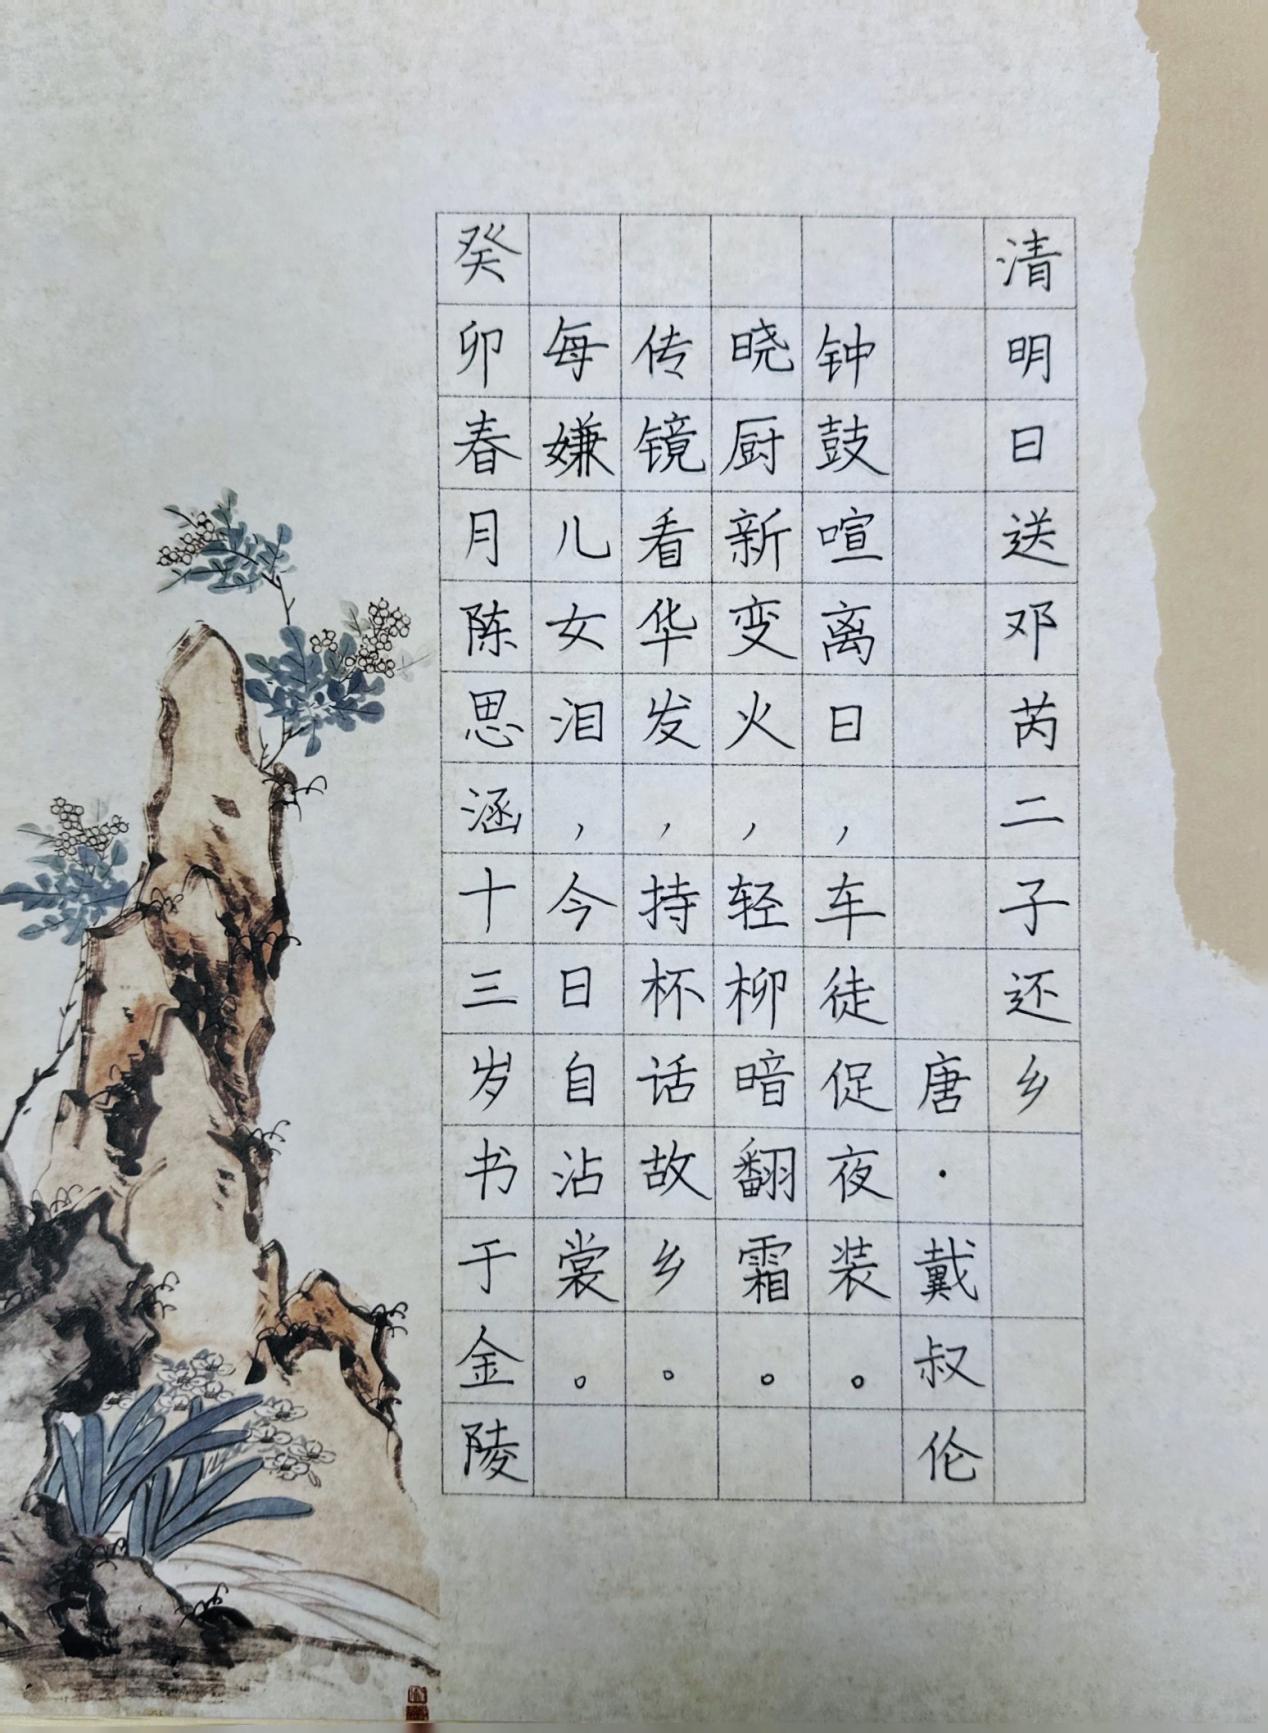 清明日送邓芮二子还乡
唐·戴叔伦
钟鼓喧离日，车徒促夜装。
晓厨新变火，轻柳暗翻霜。
传镜看华发，持杯话故乡。
每嫌儿女泪，今日自沾裳。
癸卯春月陈思涵十三岁书于金陵